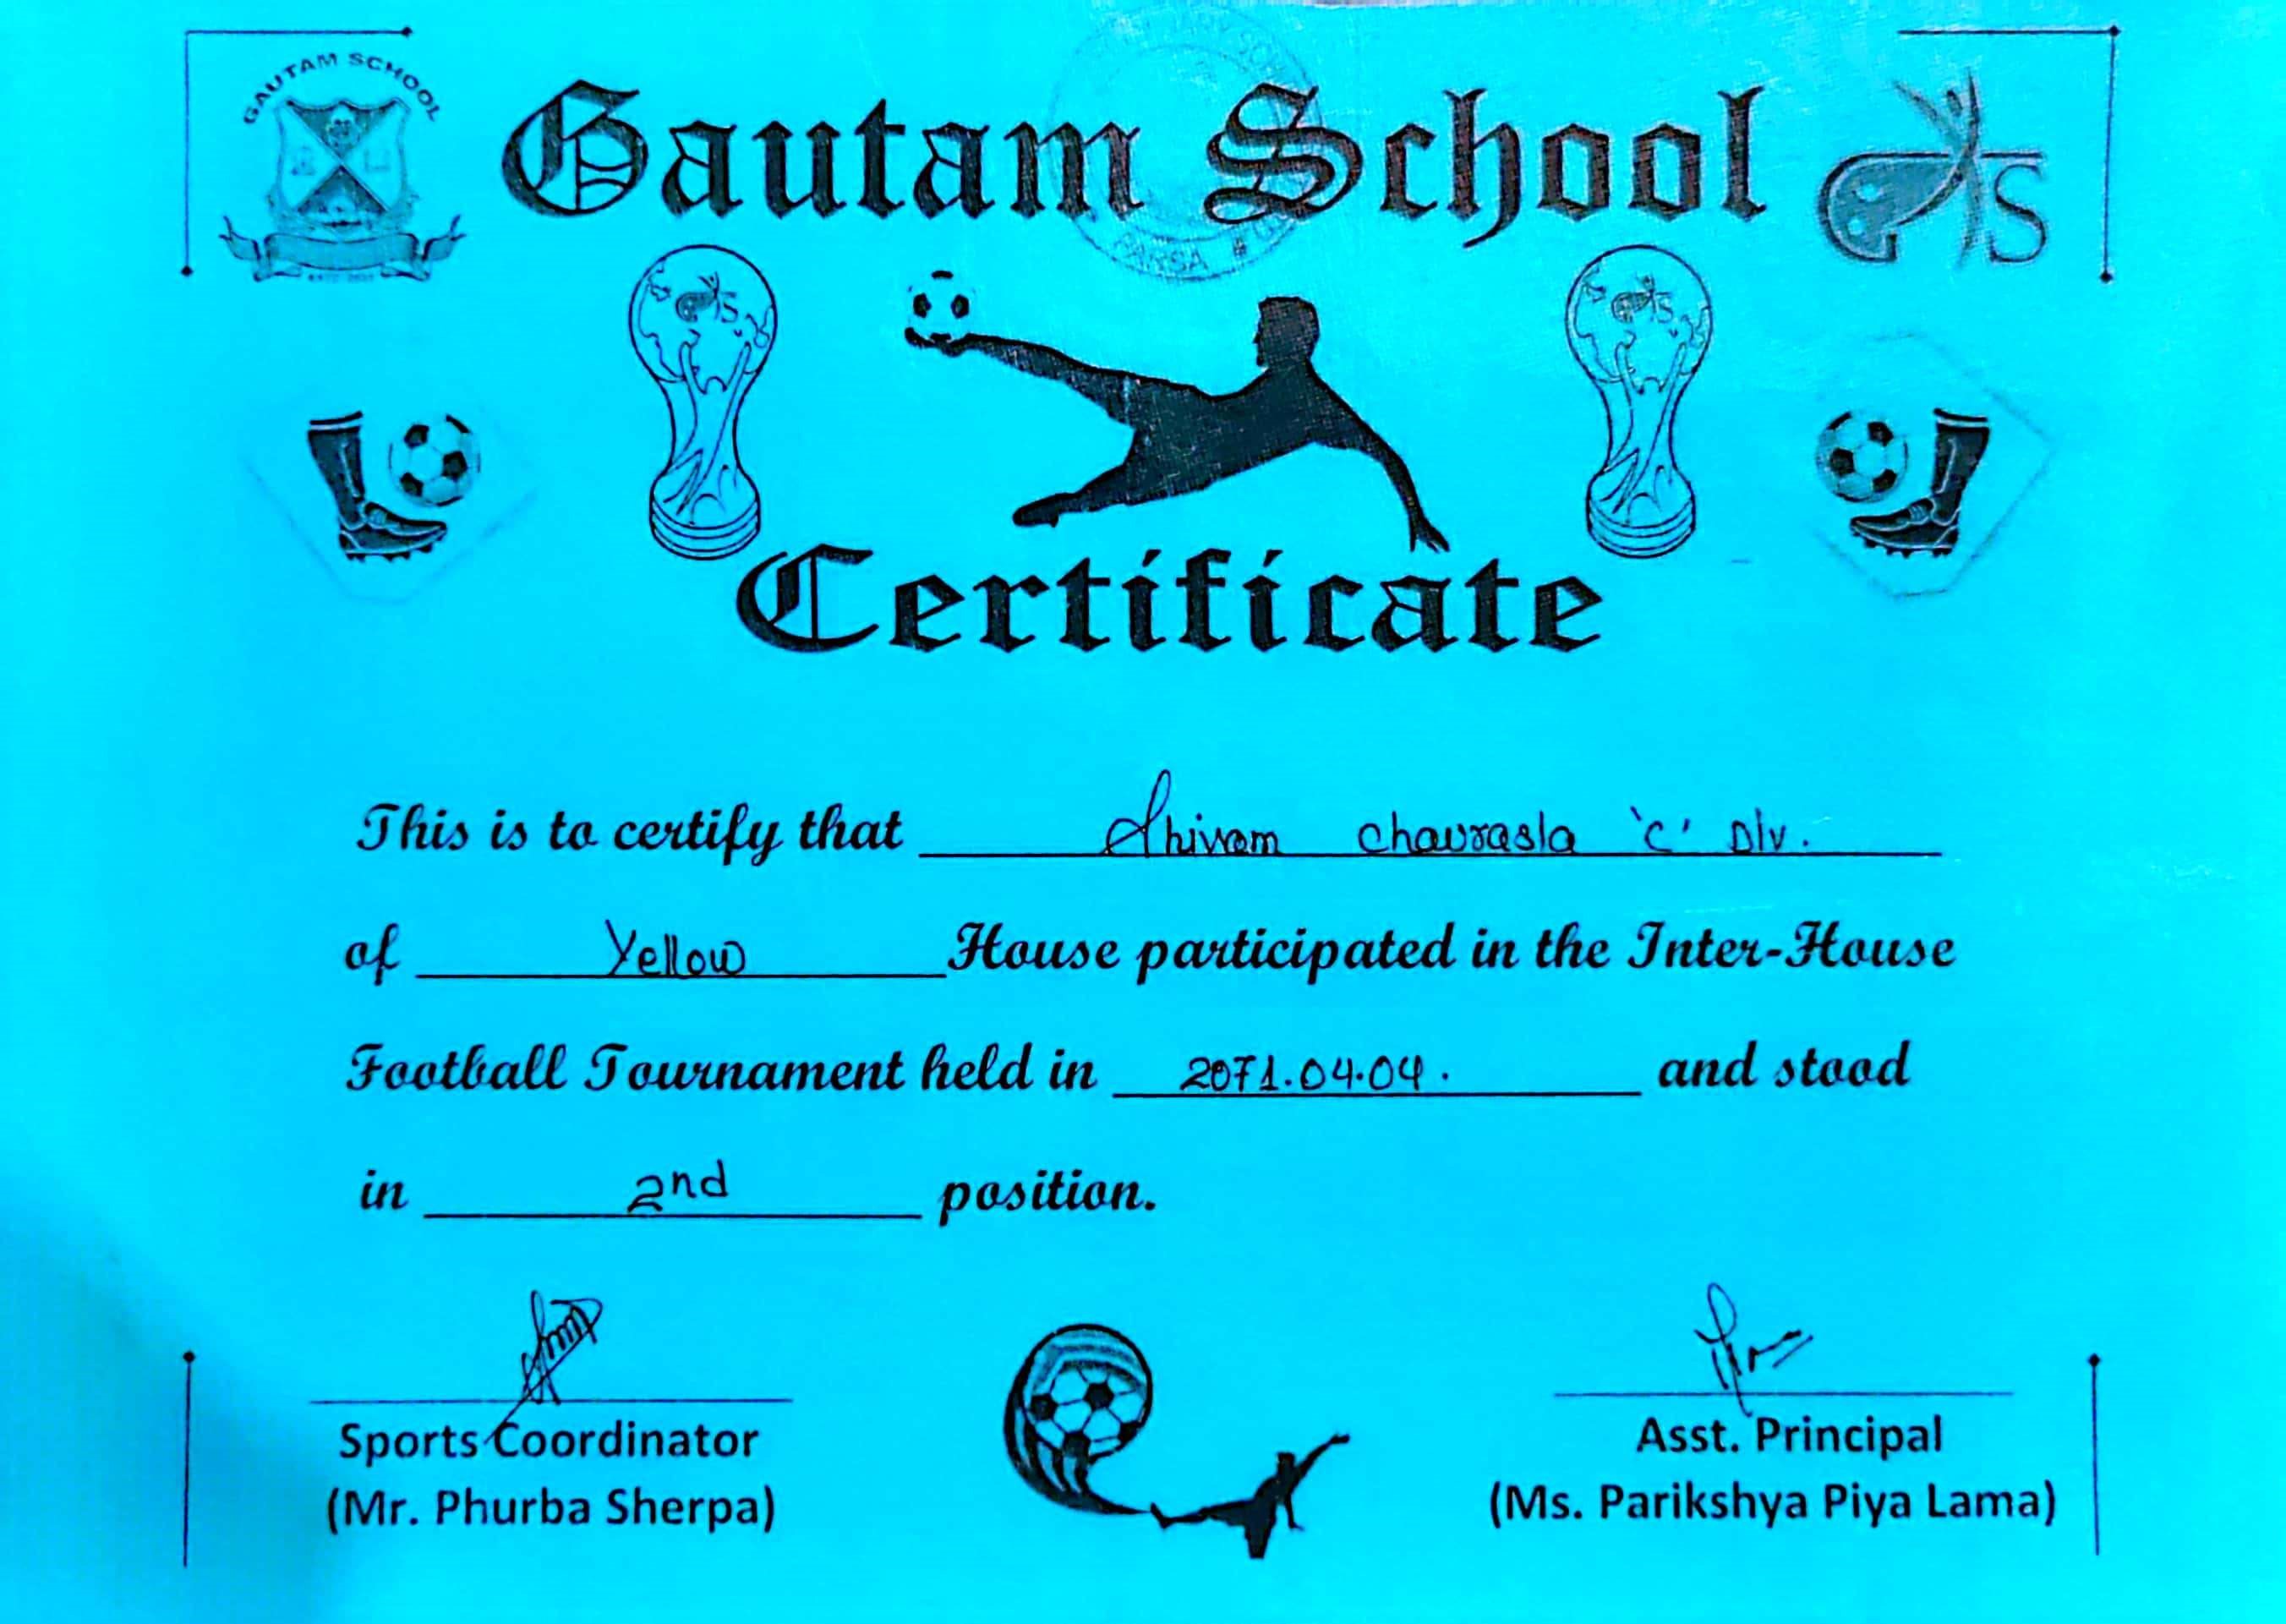 GAUTAM SCHOOL
Gautam School
S
PARSA
Certificate
This is to certify that Shivam Chaurasia 'C' Div.
of Yellow House participated in the Inter-House
Football Tournament held in 2071.04.04. and stood
in 2nd position.
Sports Coordinator
(Mr. Phurba Sherpa)
Asst. Principal
(Ms. Parikshya Piya Lama)